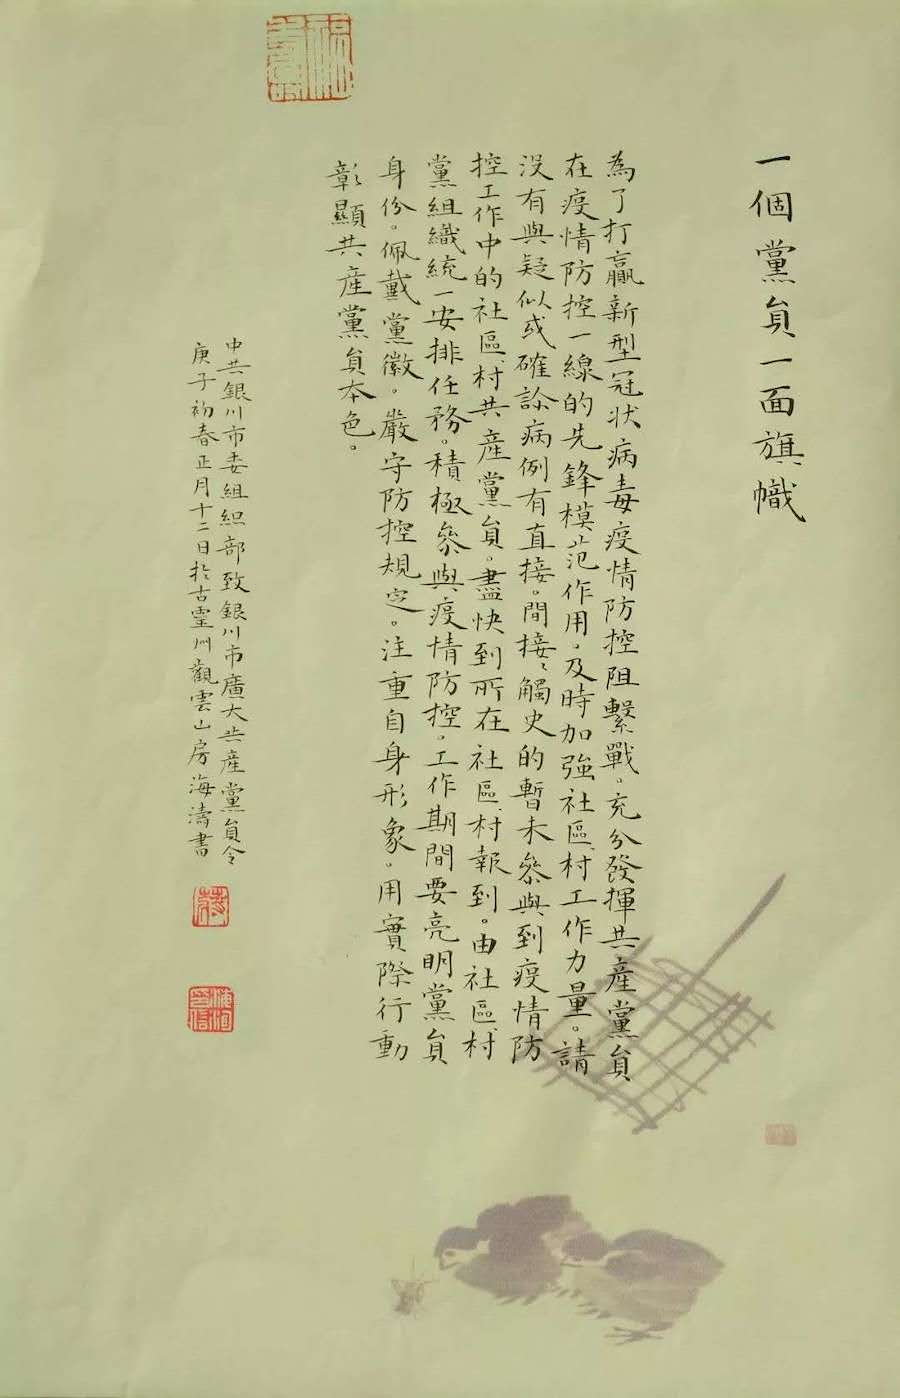 一個黨員一面旗幟
為了打贏新型冠狀病毒疫情防控阻繫戰。充分發揮共產黨員
在疫情防控一線的先鋒模范作用。及時加強社區、村工作力量。請
没有與疑似或確診病例有直接。間接、觸史的暫未參與到疫情防
控工作中的社區、村共產黨員。盡快到所在社區、村報到。由社區、村
黨組織統一安排任務。積極參與疫情防控。工作期間要亮明黨員
身份。佩戴黨徽。嚴守防控規定。注重自身形象。用實際行動
彰顯共產黨員本色。
中共銀川市委組织部致銀川市廣大共產黨員令
庚子初春正月十二日於古靈州觀雲山房海濤書